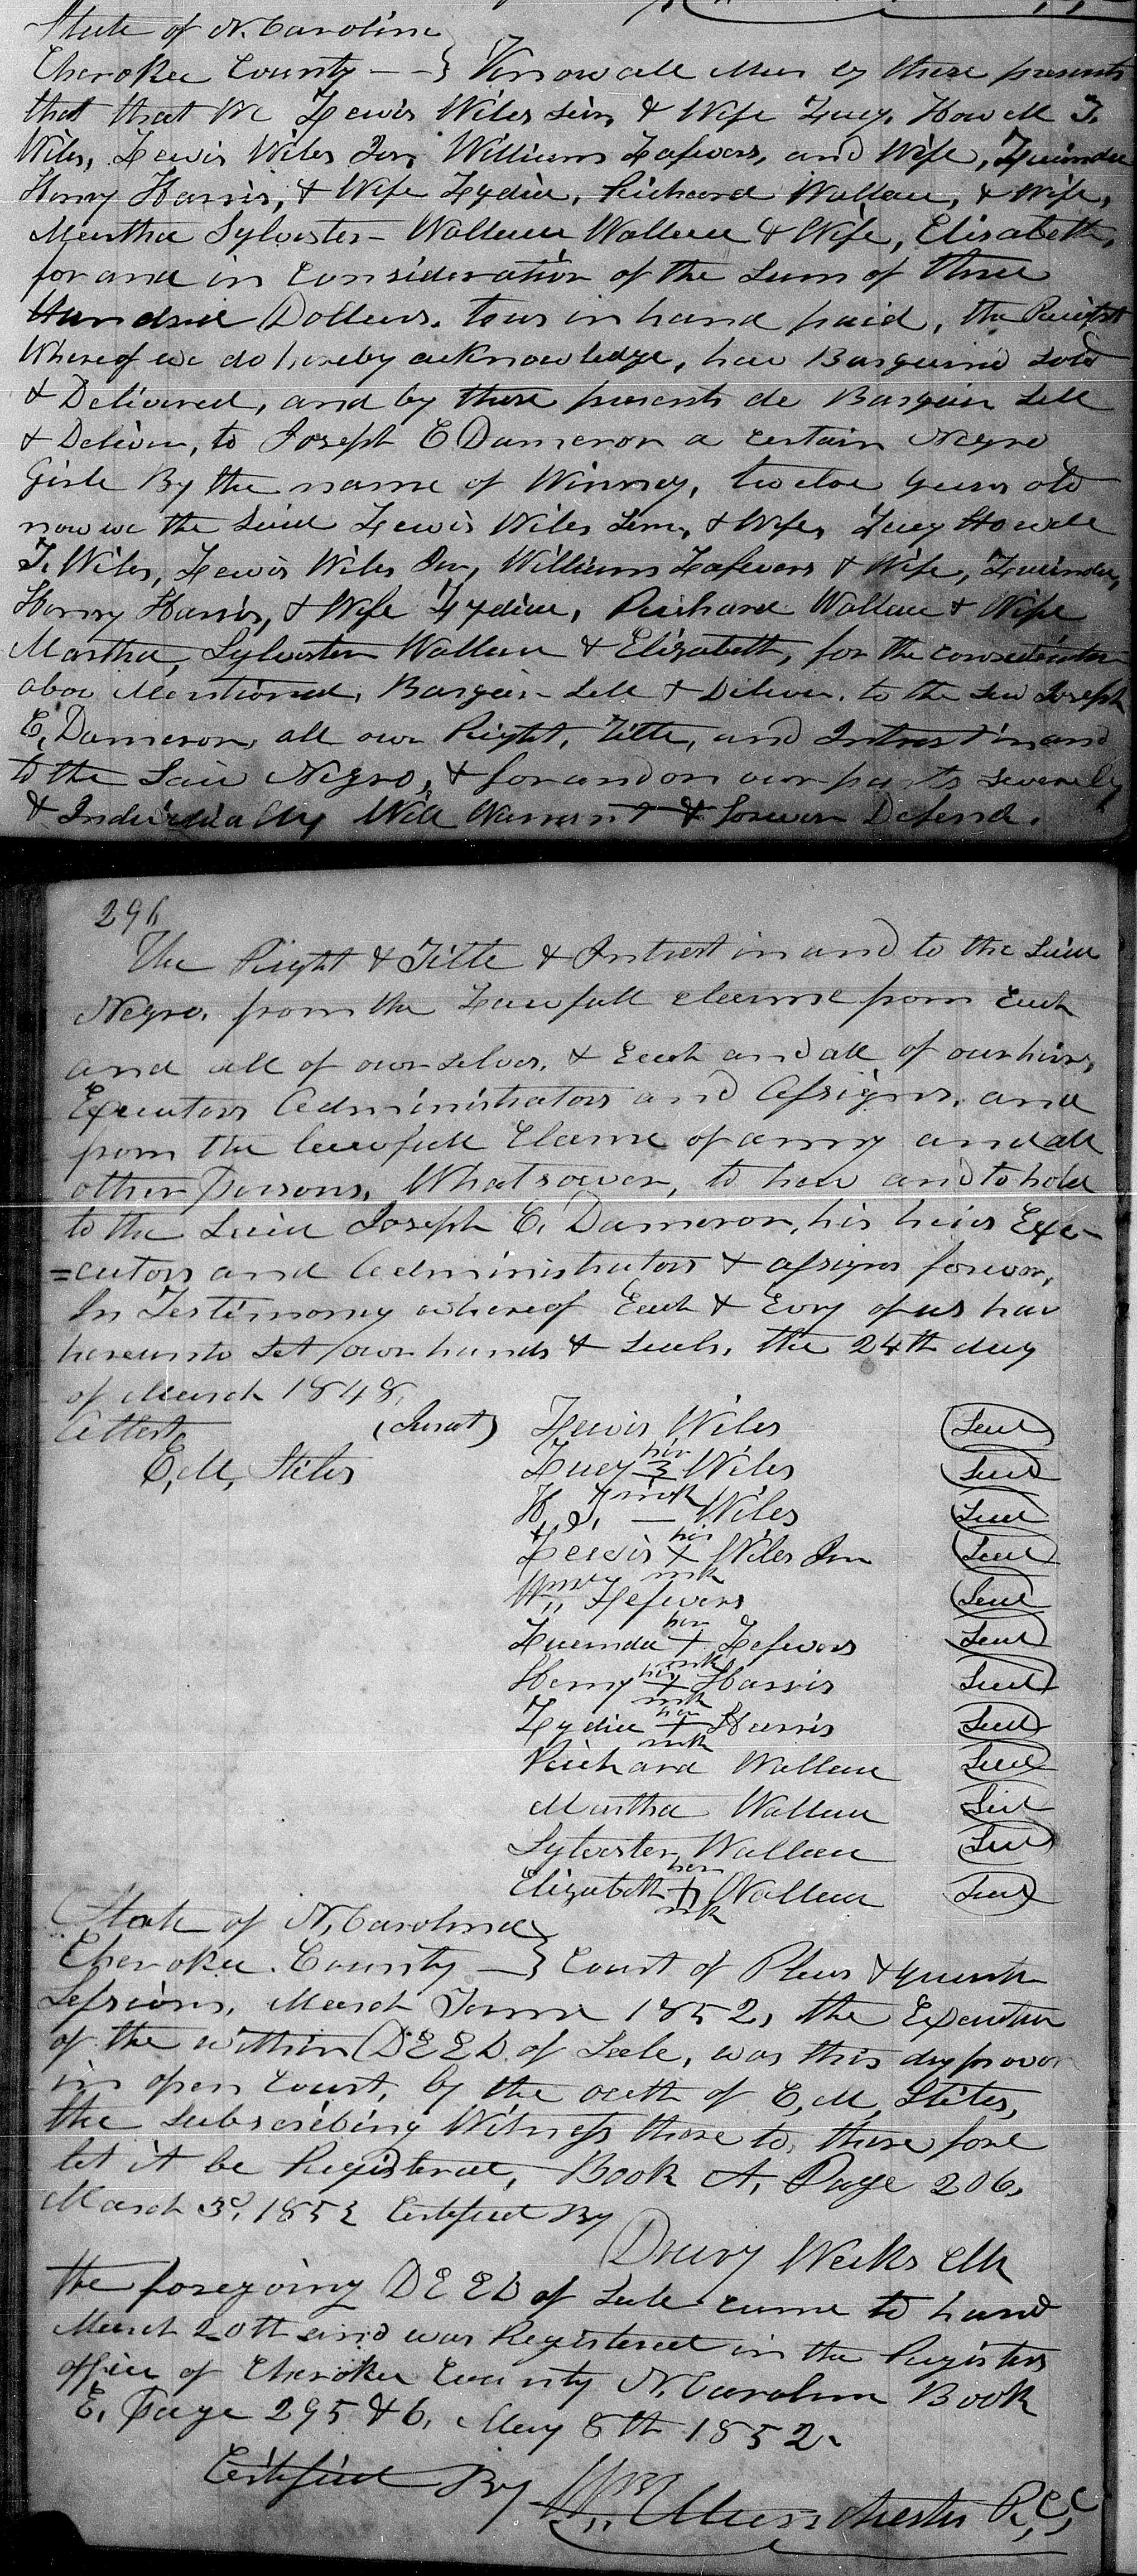 State of N. Carolina
Cherokee County - -} Know all Men by these presents
that that We Lewis Wiles Sen, & Wife Lucy, Howell T.
Wiles, Lewis Wiles Jun, William Lafevers, and Wife, Lucinda
Henry Harris, & Wife Lydia, Richard Wallace, & Wife,
Martha Sylvester - Wallace Wallace & Wife, Elisabeth,
for and in Consideration of the Sum of three
Hundred Dollars. to us in hand paid, the Receipt
Whereof we do hereby acknowledge, hav Bargaind Sold
& Delivered, and by these presents do Bargain Sell
& Deliver, to Joseph E Dameron a certain Negro
Girle By the name of Winney, twelve years old
now we the Said Lewis Wiles Sen, & Wife, Lucy Howell
T. Wiles, Lewis Wiles Jun, William Lafevers & Wife, Lucinda,
Henry Harris, & Wife Lydia, Richard Wallace & Wife
Martha, Sylvester Wallace & Elizabeth, for the consideration
abov Mentioned, Bargain Sell & Deliver. to the Sad Joseph
E, Dameron, all our Right, Title, and Intrest in and
to the Said Negro, & for and on our parts severely
& Individially Will Warrant & forever Defend.
296
The Right & Title & Intrest in and to the Said
Negro, from the Lawfull claime from Each
and all of our selves, & Each and all of our heirs,
Executors Administrators and Assigns, and
from the lawfull Claime of anny and all
other Persons, Whatsoever, to have and to hold
to the Said Joseph E. Dameron, his heirs Exe-
=cutors and Administrators & assigns forever,
In Testimony whereof Each & Evry of us hav
hereunto Set our hands & Seals, the 24th day
of March 1848,
Attest (Jurat) Lewis Wiles (Seal)
E, M, Stiles Lucy her mrk Wiles (Seal)
H, T, - Wiles (Seal)
Lewis his X mrk Wiles Jun (Seal)
Wm Lefevers (Seal)
Lucinda her + mrk Lefevers (Seal)
Henry his + mrk Harris (Seal)
Lydia her + mrk Harris (Seal)
Richard Wallace (Seal)
Martha Wallace Seal
Sylvester Wallace (Seal)
Elizabeth her + mrk Wallace (Seal)
State of N, Carolina
Cherokee County -} Court of Pleas & quartr
Sessions, March Terme 1852, the Execution
of the within DEED of Sale, was this day proven
in open Court, by the oath of E, M, Stiles,
the Subscribing Witness thereto, therefore
let it be Registered, Book A, Page 206,
March 3d, 1852 Certified By
Drury Weeks Clk
the foregoing DEED of Sale came to hand
March 20th and was Registered in the Registers
office of Cherokee County N. Carolina Book
E, Page 295 & 6, May 8th 1852.
Certified By Wm Manchester R,C,C,